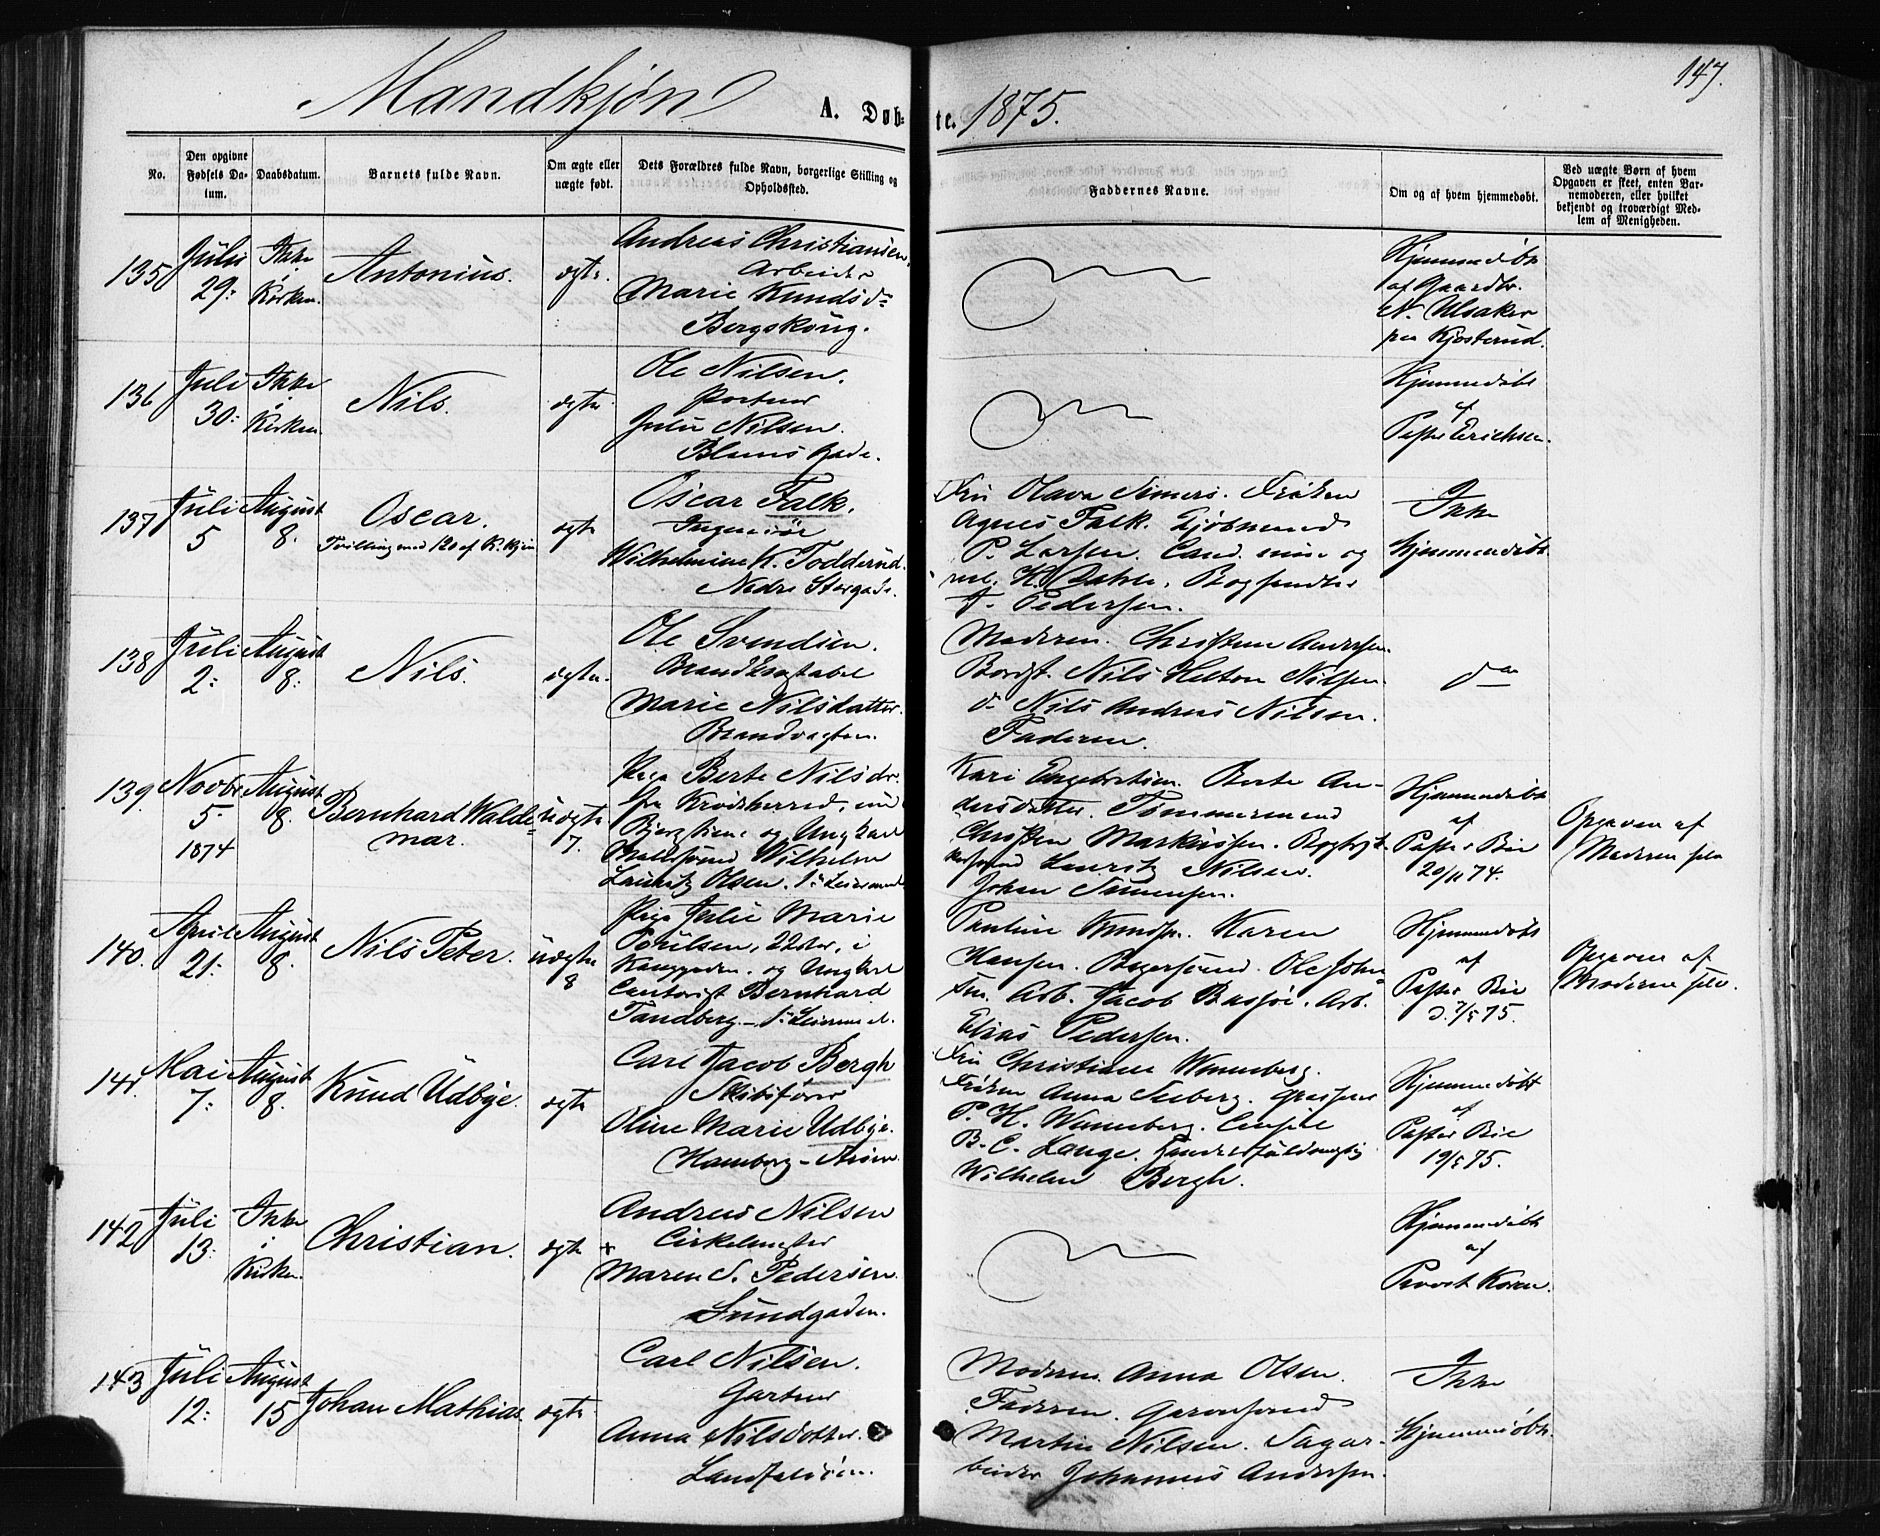 147.
Mandkjøn
A. Døb-
te. 1875.
No.
Den opgivne
Fødsels Da-
tum.
Daabsdatum.
Barnets fulde Navn.
Om ægte eller
uægte født.
Dets Forældres fulde Navn, borgerlige Stilling og
Opholdssted.
Faddernes Navne.
Om og af hvem hjemmedøbt.
Ved uægte Børn af hvem
Opgaven er skeet, enten Bar-
nemoderen, eller hvilket
bekjendt og troværdigt Med-
lem af Menigheden.
135
Juli
29:
Ikke
i
Kirken.
Antonius.
ægte.
Andreas Christiansen,
Arbeider
Marie Knudsd.
Bergskoug.
Hjemmedøbt
af Gaardbr.
N. Ulsaker
paa Kjøsterud.
136
Juli
30:
Ikke
i
Kirken
Nils.
ægte.
Ole Nilsen.
Portner
Julie Nilsen.
Blums Gade.
Hjemmedøbt
af
Pastor Erichsen.
137
Juli
5
August
8.
Oscar.
Tvilling med 120 af K. Kjøn
ægte
Oscar Falk.
Ingeniør
Wilhelmine K. Todderud.
Nedre Storgade.
Fru Olava Simers. Frøken
Agnes Falk. Kjøbmand
P. Larsen. Cand. min og
H. Dahle. Boghandler
Pedersen.
Ikke
Hjemmedøbt
138
Juli
2:
August
8:
Nils.
ægte.
Ole Svendsen.
Brandkonstabel
Marie Nilsdatter.
Brandvagten.
Moderen. Christine Andersen.
Nils Helton Nilsen.
do Nils Andreas Nilsen.
Faderen.
do
139.
Novbr
5.
1874
August
8.
Bernhard Walde-
mar.
uægte
7.
Pige Berte Nilsdr.
fra Krødsherred, nu
Bjergstien og Ungkarl
Wilhelm
Lauritz Olsen. 1ste Leiermaal
Kari Engebretsen. Berte An-
dersdatter. Tømmermand
Christen Markussen.
Lauritz Nilsen.
Johan Simensen.
Hjemmedøbt
af
Pastor Bie
20/11 74.
Opgaven af
Moderen selv
140.
April
21:
August
8.
Nils Peter.
uægte
8
Pige Julie Marie
Poulsen, 22 Aar, i
og Ungkarl
Bernhard
Tandberg. – 1ste Leiermaal.
Pauline Knudsen. Karen
Hansen. Ole Johan-
sen. Arb. Jacob Arb.
Elias Pedersen.
Hjemmedøbt
af
Pastor Bie
d. 7/5 75.
Opgaven af
Moderen selv.
141.
Mai
7:
August
8.
Knud Udbye.
ægte
Carl Jacob Bergh
Skibsfører
Oline Marie Udbye.
Hamborg –
Fru Christiane Wenneberg.
Frøken Anna Seeberg.
P. H. Wenneberg.
B. C. Lange.
Wilhelm Bergh.
Hjemmedøbt
af
Pastor Bie
19/5 75.
142
Juli
13.
Ikke
i
Kirken.
Christian.
ægte
Andreas Nilsen
Maren S. Pedersen.
Sundgaden.
Hjemmedøbt
af
Provst Koren.
143
Juli
12:
August
15
Johan Mathias.
ægte.
Carl Nilsen.
Gartner
Anna Nilsdotter.
Landfaldøen.
Moderen. Anna Olsen.
Faderen.
Martin Nilsen. Sagar-
beider Johannes Andersen.
Ikke
Hjemmedøbt.